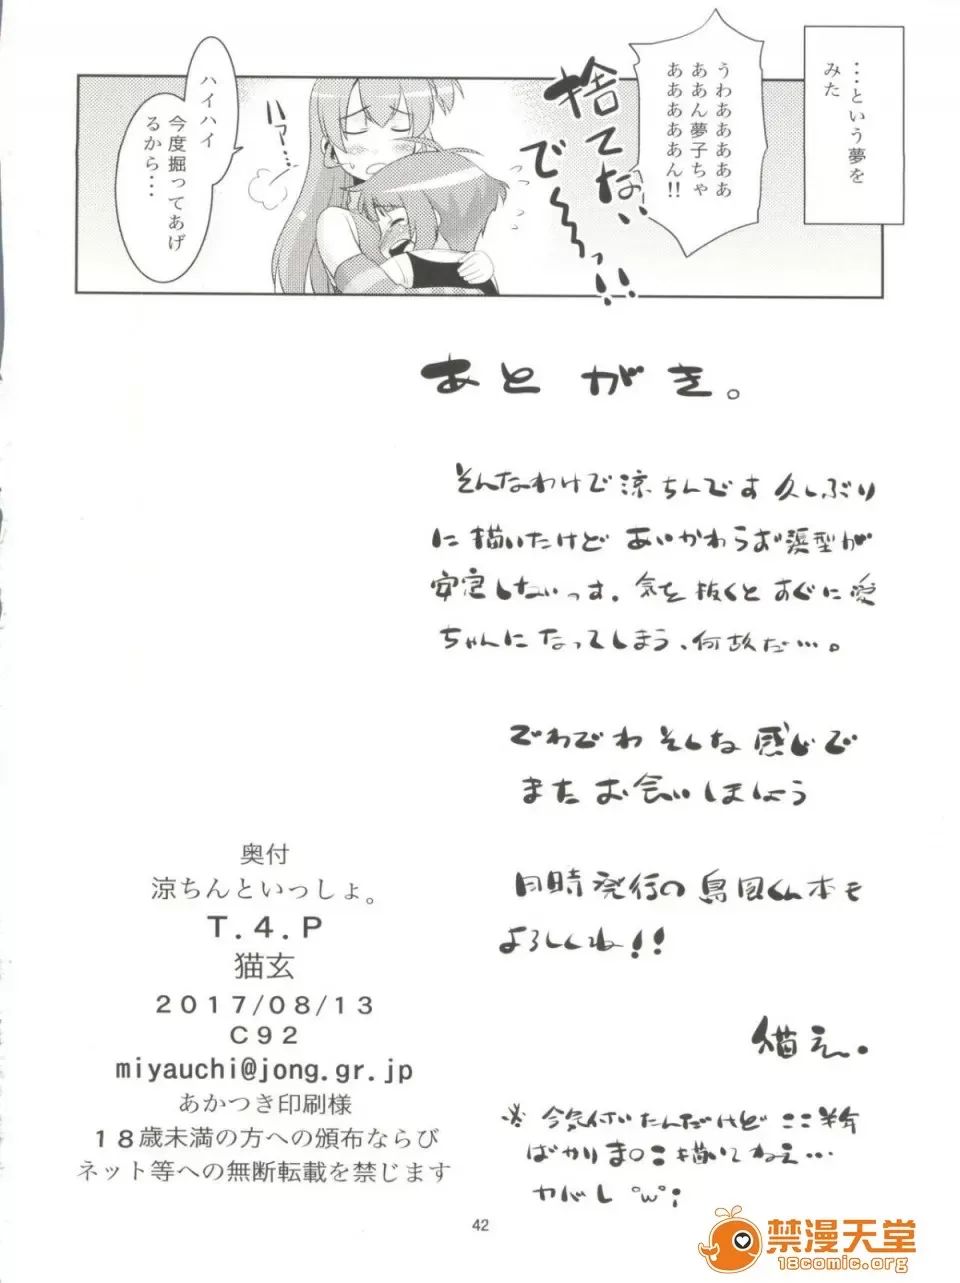 ・・・という夢を
みた
うわああああああ
ああん夢子ちゃ
ああああああん!!
捨てない
で〜〜っ!!
ハァ〜…
ハイハイ
今度掘ってあげ
るから・・・
あとがき。
そんなわけで涼ちんです久しぶり
に描いたけどあいかわらず髪型が
安定しないっす。気を抜くとすぐに愛
ちゃんになってしまう、何故だ…。
でわでわそんな感じで
またお会いしましょう
同時発行の島風くん本も
よろしくね!!
猫玄。
※今気付いたんだけどここ半年
ばかりま○こ描いてねえ…
ヤバし °w°;
奥付
涼ちんといっしょ。
T.4.P
猫玄
2017/08/13
C92
miyauchi@jong.gr.jp
あかつき印刷様
18歳未満の方への頒布ならび
ネット等への無断転載を禁じます
42
禁漫天堂
18comic.org